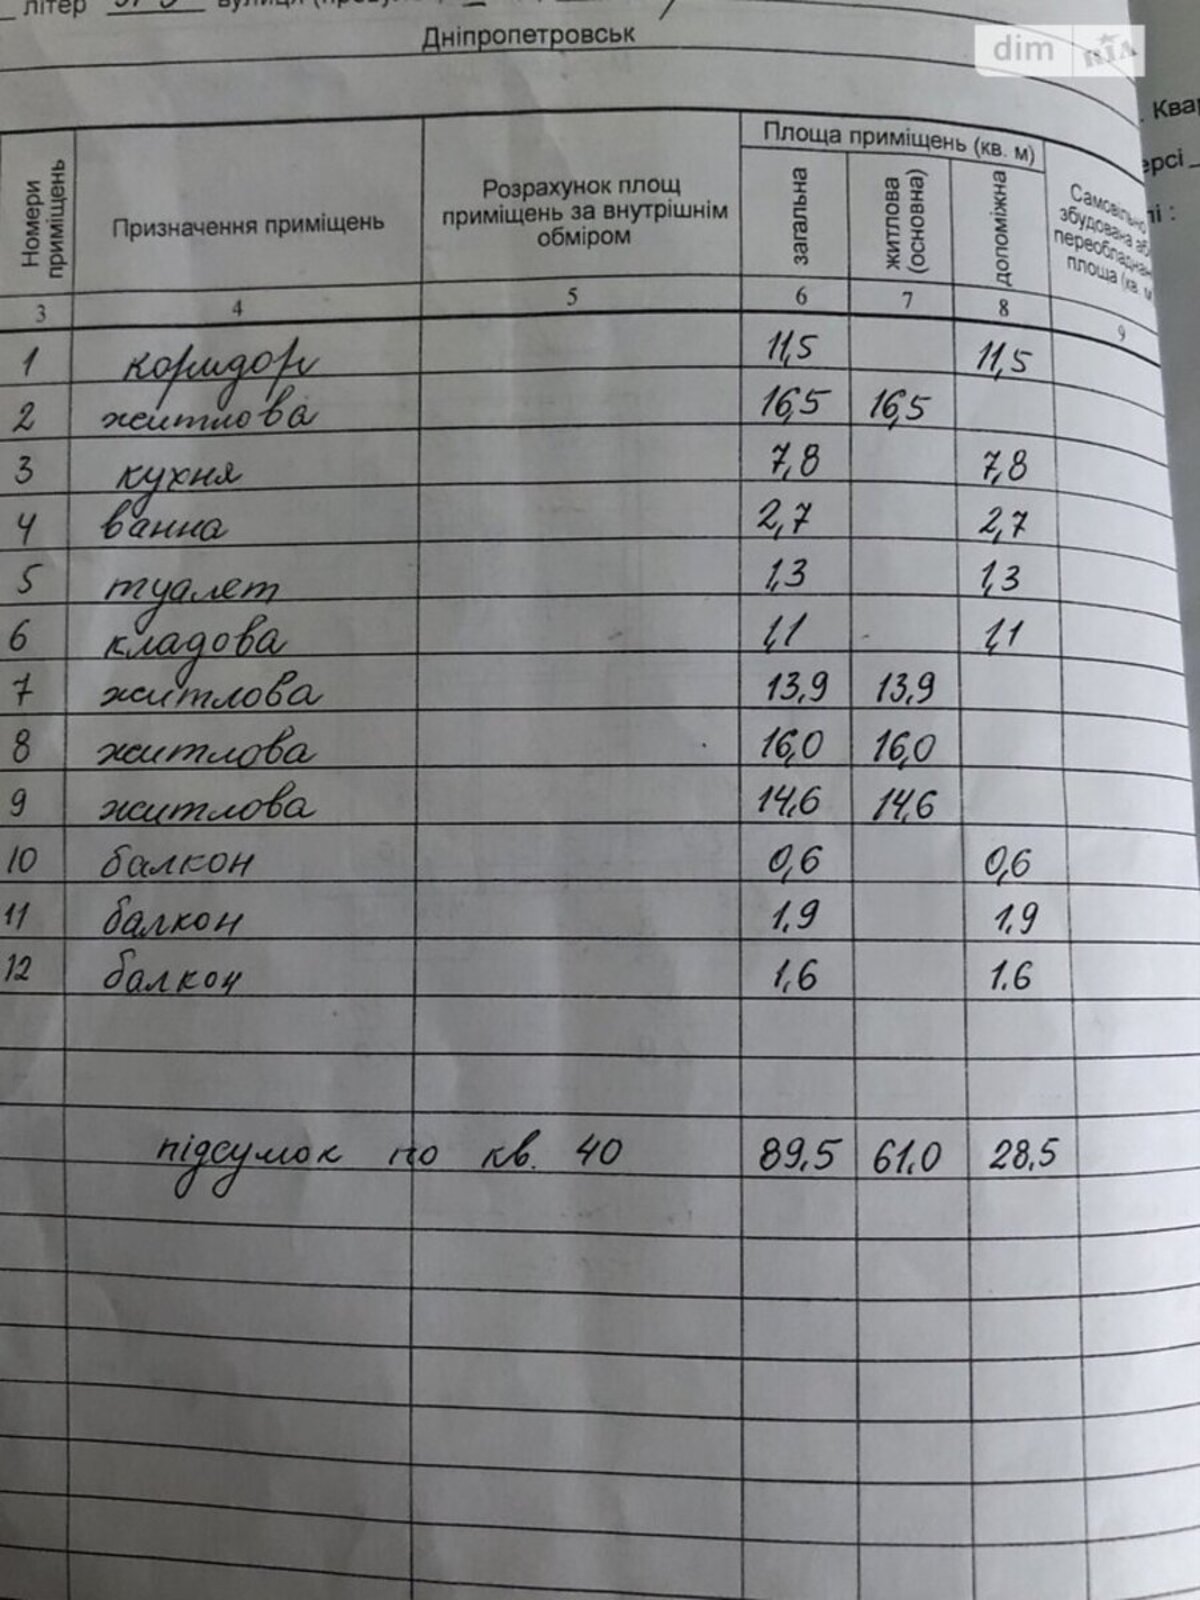 літер
Дніпропетровськ
dim RIA
Квар
ерсі
лі :
Номери приміщень
Призначення приміщень
Розрахунок площ приміщень за внутрішнім обміром
Площа приміщень (кв. м)
загальна
житлова (основна)
допоміжна
Самовільно збудована або переобладнан площа (кв. м
3 4 5 6 7 8 9
1 коридор 11,5 11,5
2 житлова 16,5 16,5
3 кухня 7,8 7,8
4 ванна 2,7 2,7
5 туалет 1,3 1,3
6 кладова 1,1 1,1
7 житлова 13,9 13,9
8 житлова 16,0 16,0
9 житлова 14,6 14,6
10 балкон 0,6 0,6
11 балкон 1,9 1,9
12 балкон 1,6 1.6
підсумок по кв. 40 89,5 61,0 28,5